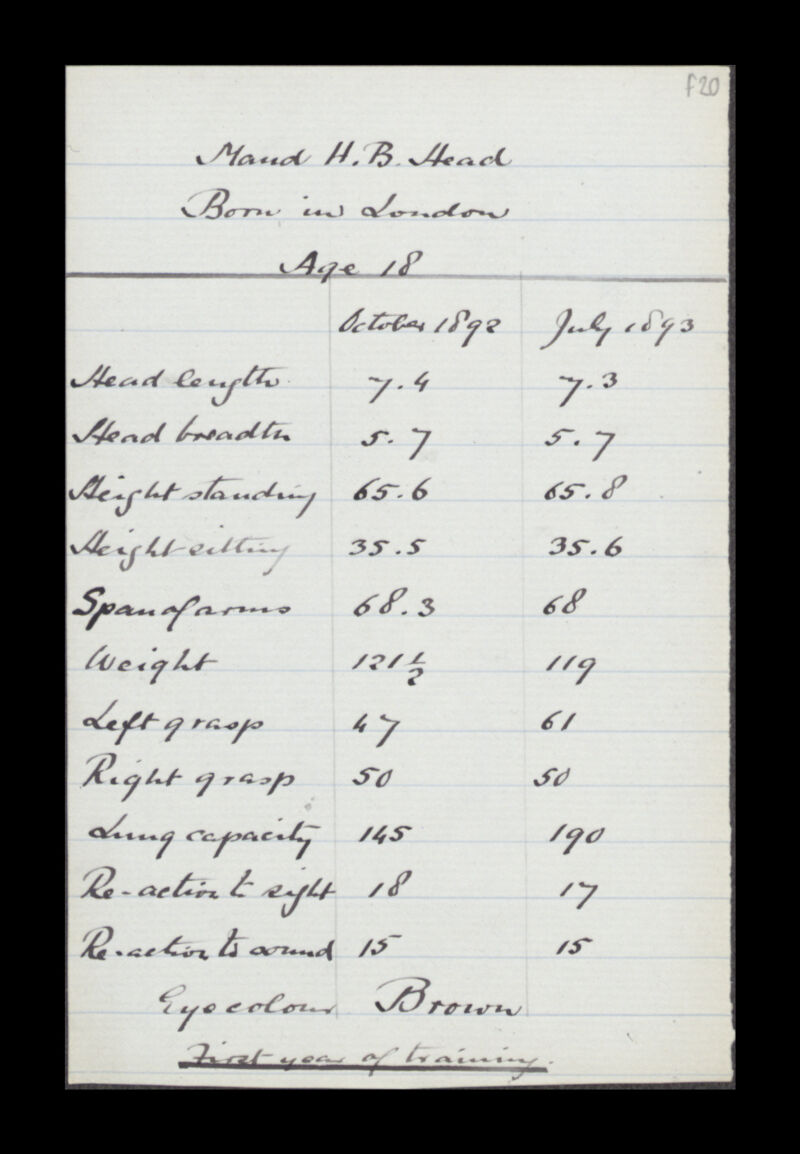 f20
Maud H.B. Head
Born in London
Age 18
October 1892 July 1893
Head length 7.4 7.3
Head breadth 5.7 5.7
Height standing 65.6 65.8
Height sitting 35.5 35.6
Span of arms 68.3 68
Weight 121½ 119
Left grasp 47 61
Right grasp 50 50
Lung capacity 145 190
Re-action to sight 18 17
Re-action to sound 15 15
Eye colour Brown
First year of training.